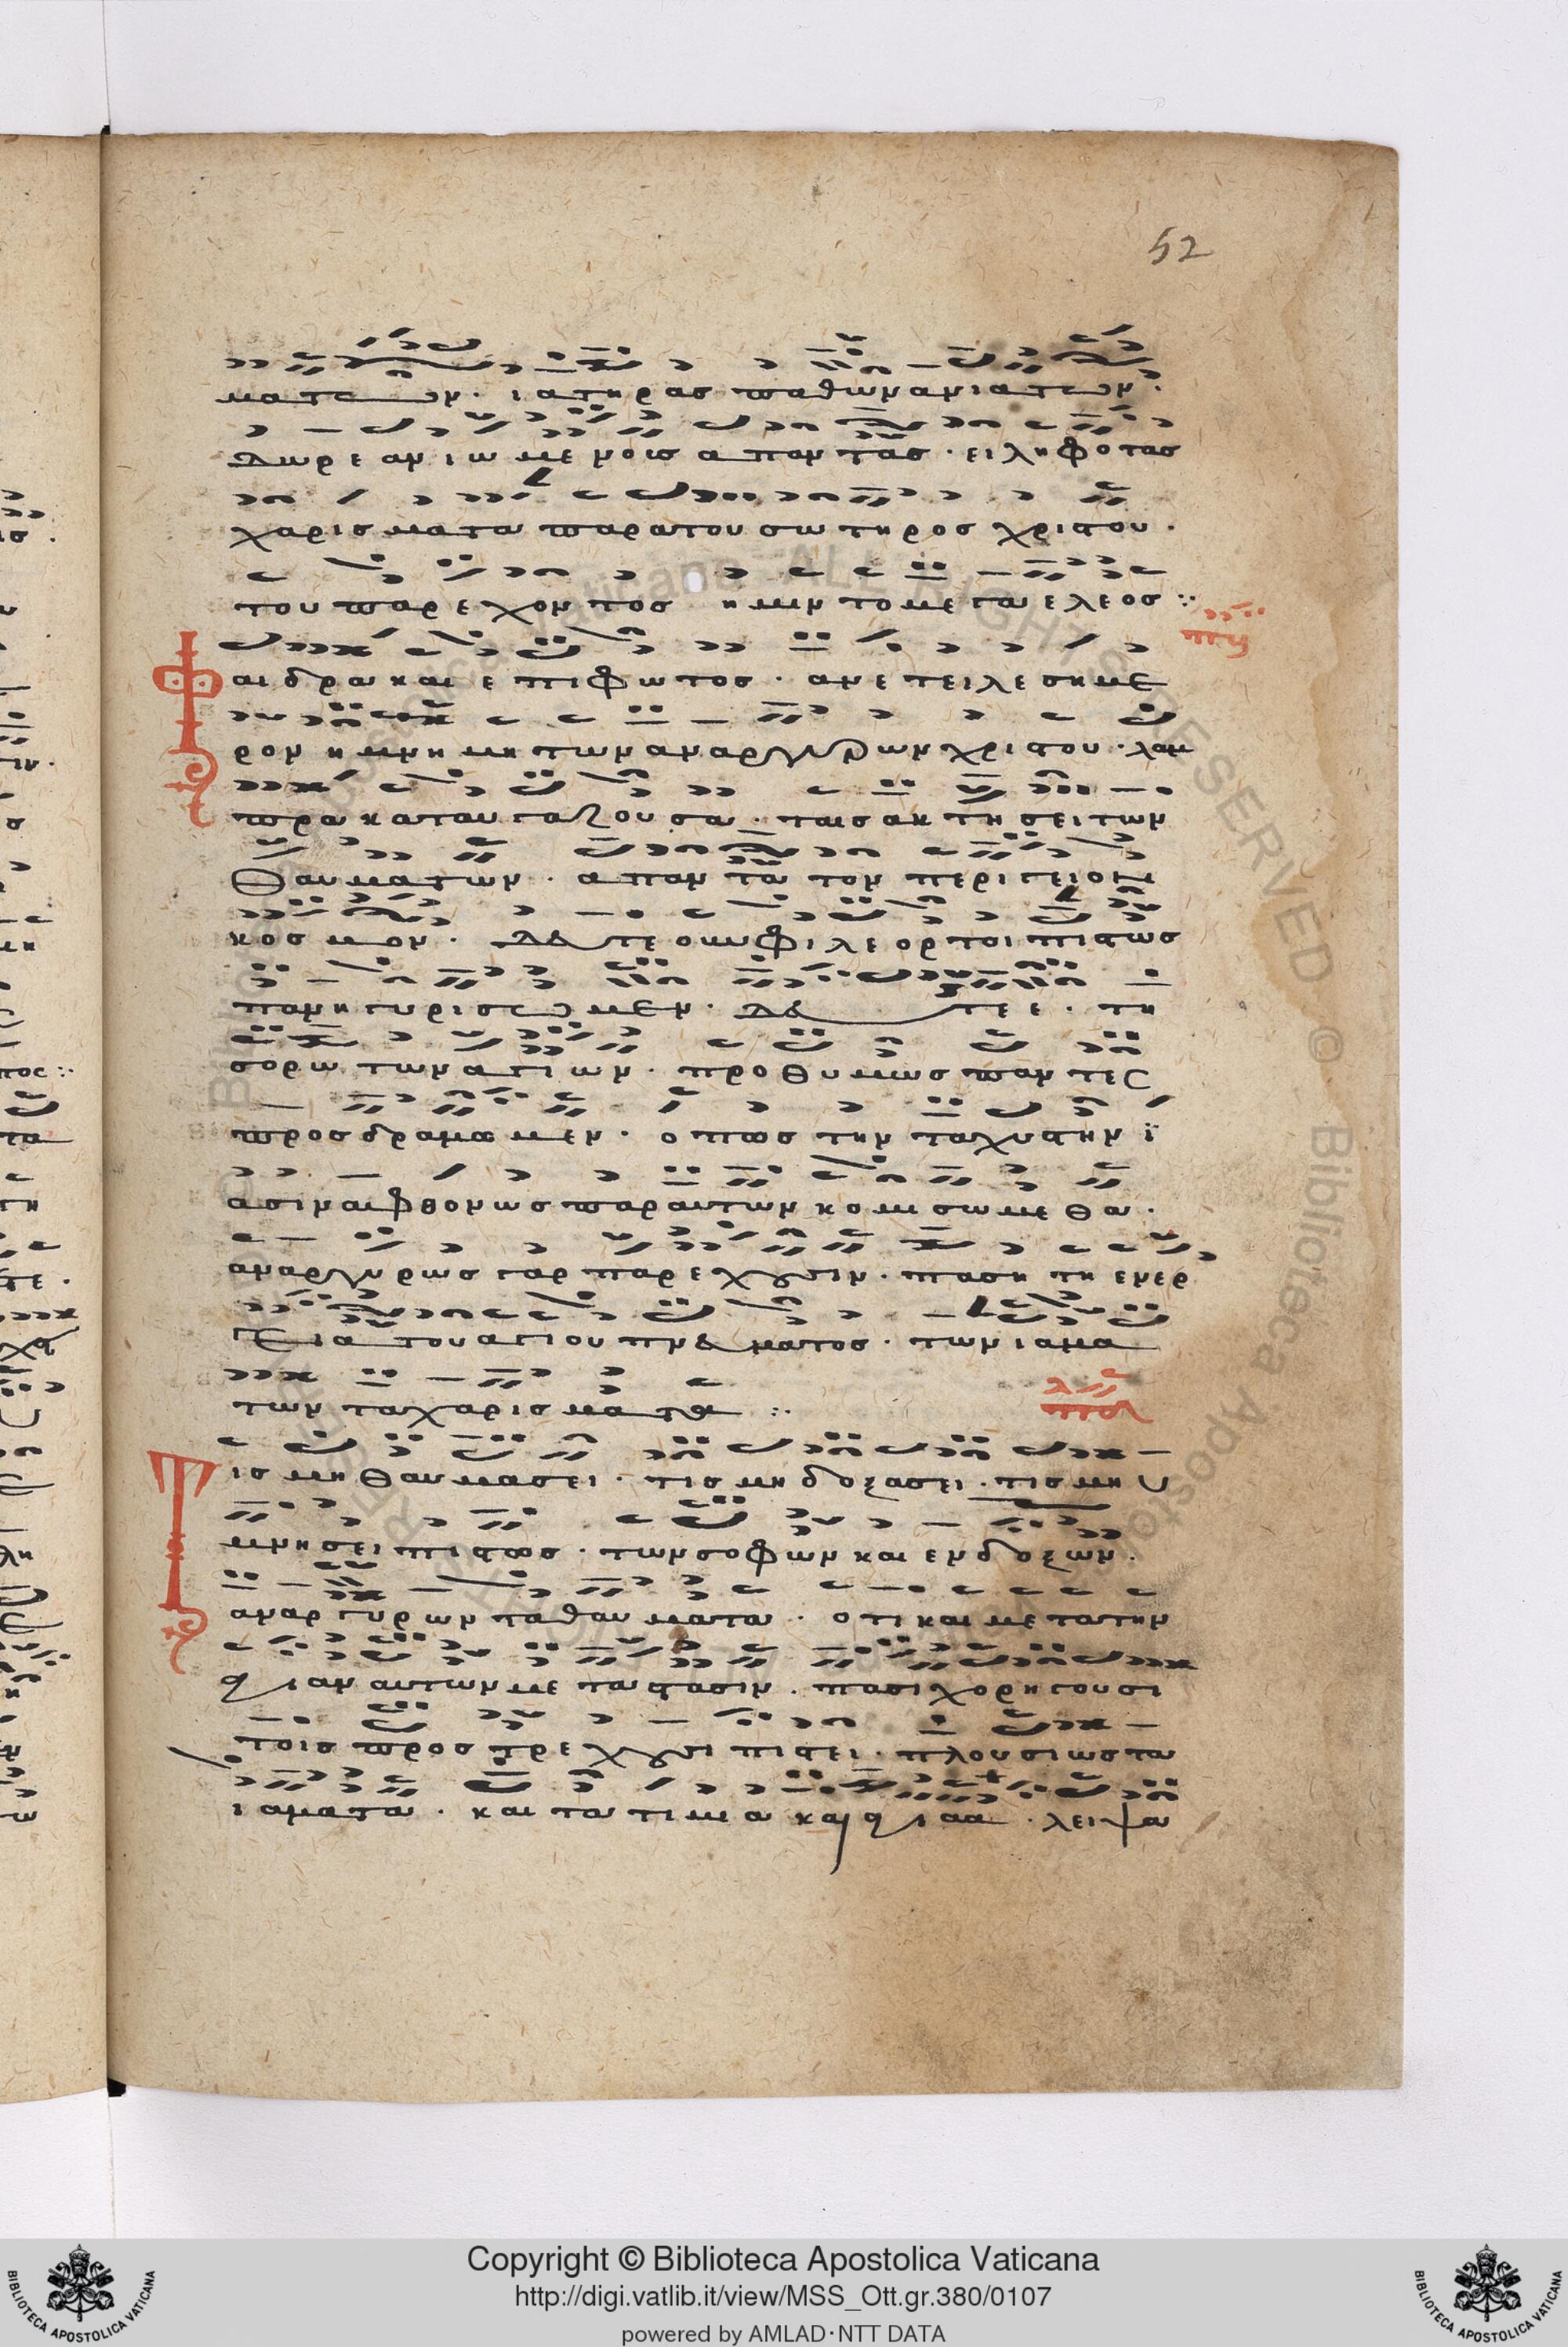 52
ματων · ιατηρασ παθων ανιατων ·
Δωρεαν ιωμενοισ απαντασ · ειληφοτασ
χαρισματα παρα του σωτηροσ χριστου ·
του παρεχοντοσ ημιν το μεγα ελεοσ :·
Φαιδρα και επιφωτοσ · ανετειλε σημε
ρον η μνημη των αναργυρων χριστου · λαμ
πρα καταυγαζουσα · ταισ ακτησει των
θαυματων · απαντα τον περιγειον
κοσμον · Δευτε ουν φιλεορτοι πιστωσ
πανηγυρισωμεν · Δευτεε · τη
σορω των αγιων · προθυμωσ παντεσ
προσδραμωμεν · οπωσ την ταχυστην ϊ
ασιν αφθονωσ παρ αυτων κομισωμεθα ·
αναργυρωσ γαρ παρεχουσιν · παση τη ενερ
γεια του αγιου πνευματοσ · των ιαμα
των τα χαρισματα :·
Τισ μη θαυμασει · τισ μη δοξασει · τισ μη υ
μνησει πιστωσ · των σοφων και ενδοξων ·
αναργυρων τα θαυματα · οτι και μετα την
αγιαν αυτων μεταστασιν · πασι χορηγουσι
τοισ προστρεχουσι πιστει · πλουσιωσ τα
ιαματα · και τα τιμια και αγιαα · λειψα
Copyright © Biblioteca Apostolica Vaticana
http://digi.vatlib.it/view/MSS_Ott.gr.380/0107
powered by AMLAD·NTT DATA
BIBLIOTECA APOSTOLICA VATICANA
BIBLIOTECA APOSTOLICA VATICANA